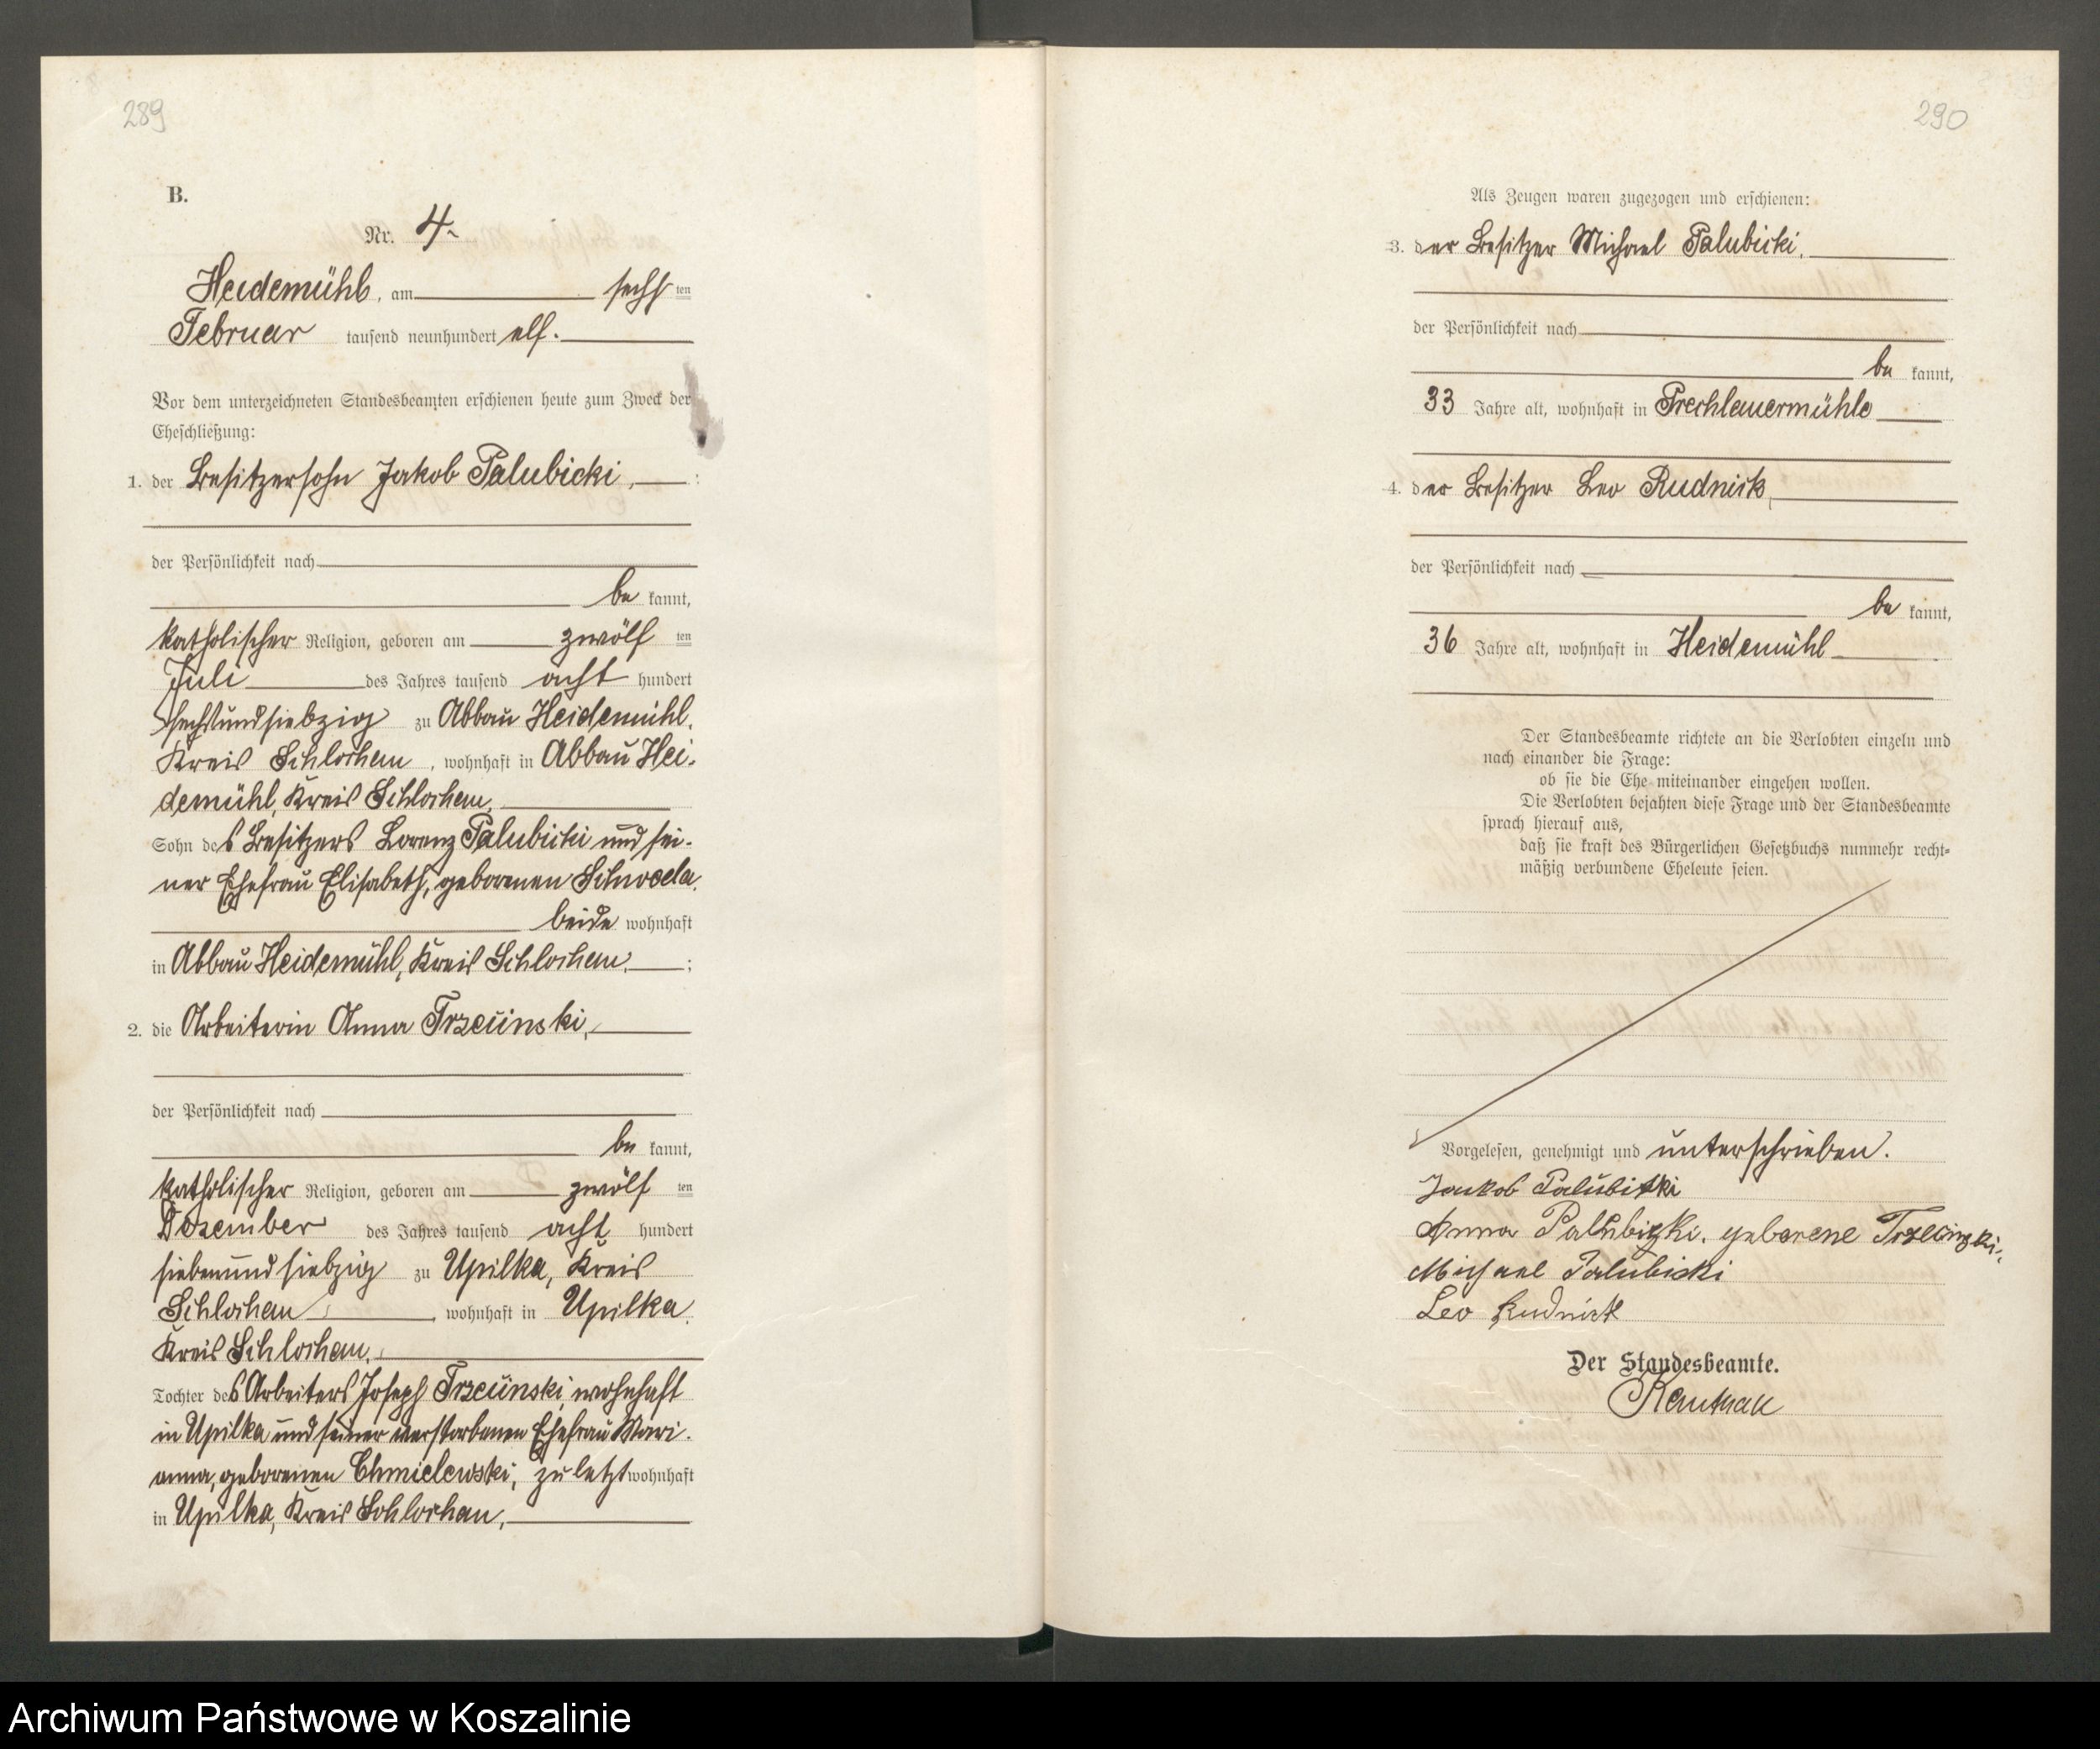 289
B.
Nr. 4.
Heidemühl, am sechsten
Februar tausend neunhundert elf.
Vor dem unterzeichneten Standesbeamten erschienen heute zum Zweck der
Eheschließung:
1. der Besitzersohn Jakob Palubicki, ;
der Persönlichkeit nach
be kannt,
katholischer Religion, geboren am zwölf ten
Juli des Jahres tausend acht hundert
sechsundsiebzig zu Abbau Heidemühl,
Kreis Schlochau, wohnhaft in Abbau Hei-
demühl, Kreis Schlochau,
Sohn des Besitzers Lorenz Palubicki und sei-
ner Ehefrau Elisabeth, geborenen
beide wohnhaft
in Abbau Heidemühl, Kreis Schlochau, ;
2. die Arbeiterin Anna Trzcinski,
der Persönlichkeit nach
be kannt,
katholischer Religion, geboren am zwölf ten
Dezember des Jahres tausend acht hundert
siebenundsiebzig zu Upilka, Kreis
Schlochau, wohnhaft in Upilka
Kreis Schlochau,
Tochter des Arbeiters Joseph Trzcinski, wohnhaft
in Upilka und seiner verstorbenen Ehefrau Mari-
anna, geborenen Chmielewski, zuletzt wohnhaft
in Upilka, Kreis Schlochau,
290
Als Zeugen waren zugezogen und erschienen:
3. der Besitzer Michael Palubicki,
der Persönlichkeit nach
be kannt,
33 Jahre alt, wohnhaft in Prechlauermühle
4. der Besitzer Leo Rudnick,
der Persönlichkeit nach
be kannt,
36 Jahre alt, wohnhaft in Heidemühl
Der Standesbeamte richtete an die Verlobten einzeln und
nach einander die Frage:
ob sie die Ehe miteinander eingehen wollen.
Die Verlobten bejahten diese Frage und der Standesbeamte
sprach hierauf aus,
daß sie kraft des Bürgerlichen Gesetzbuchs nunmehr recht-
mäßig verbundene Eheleute seien.
Vorgelesen, genehmigt und unterschrieben.
Jakob Palubicki
Anna Palubizki, geborene Trzcinzki.
Michael Palubicki
Leo Rudnick
Der Standesbeamte.
Archiwum Państwowe w Koszalinie